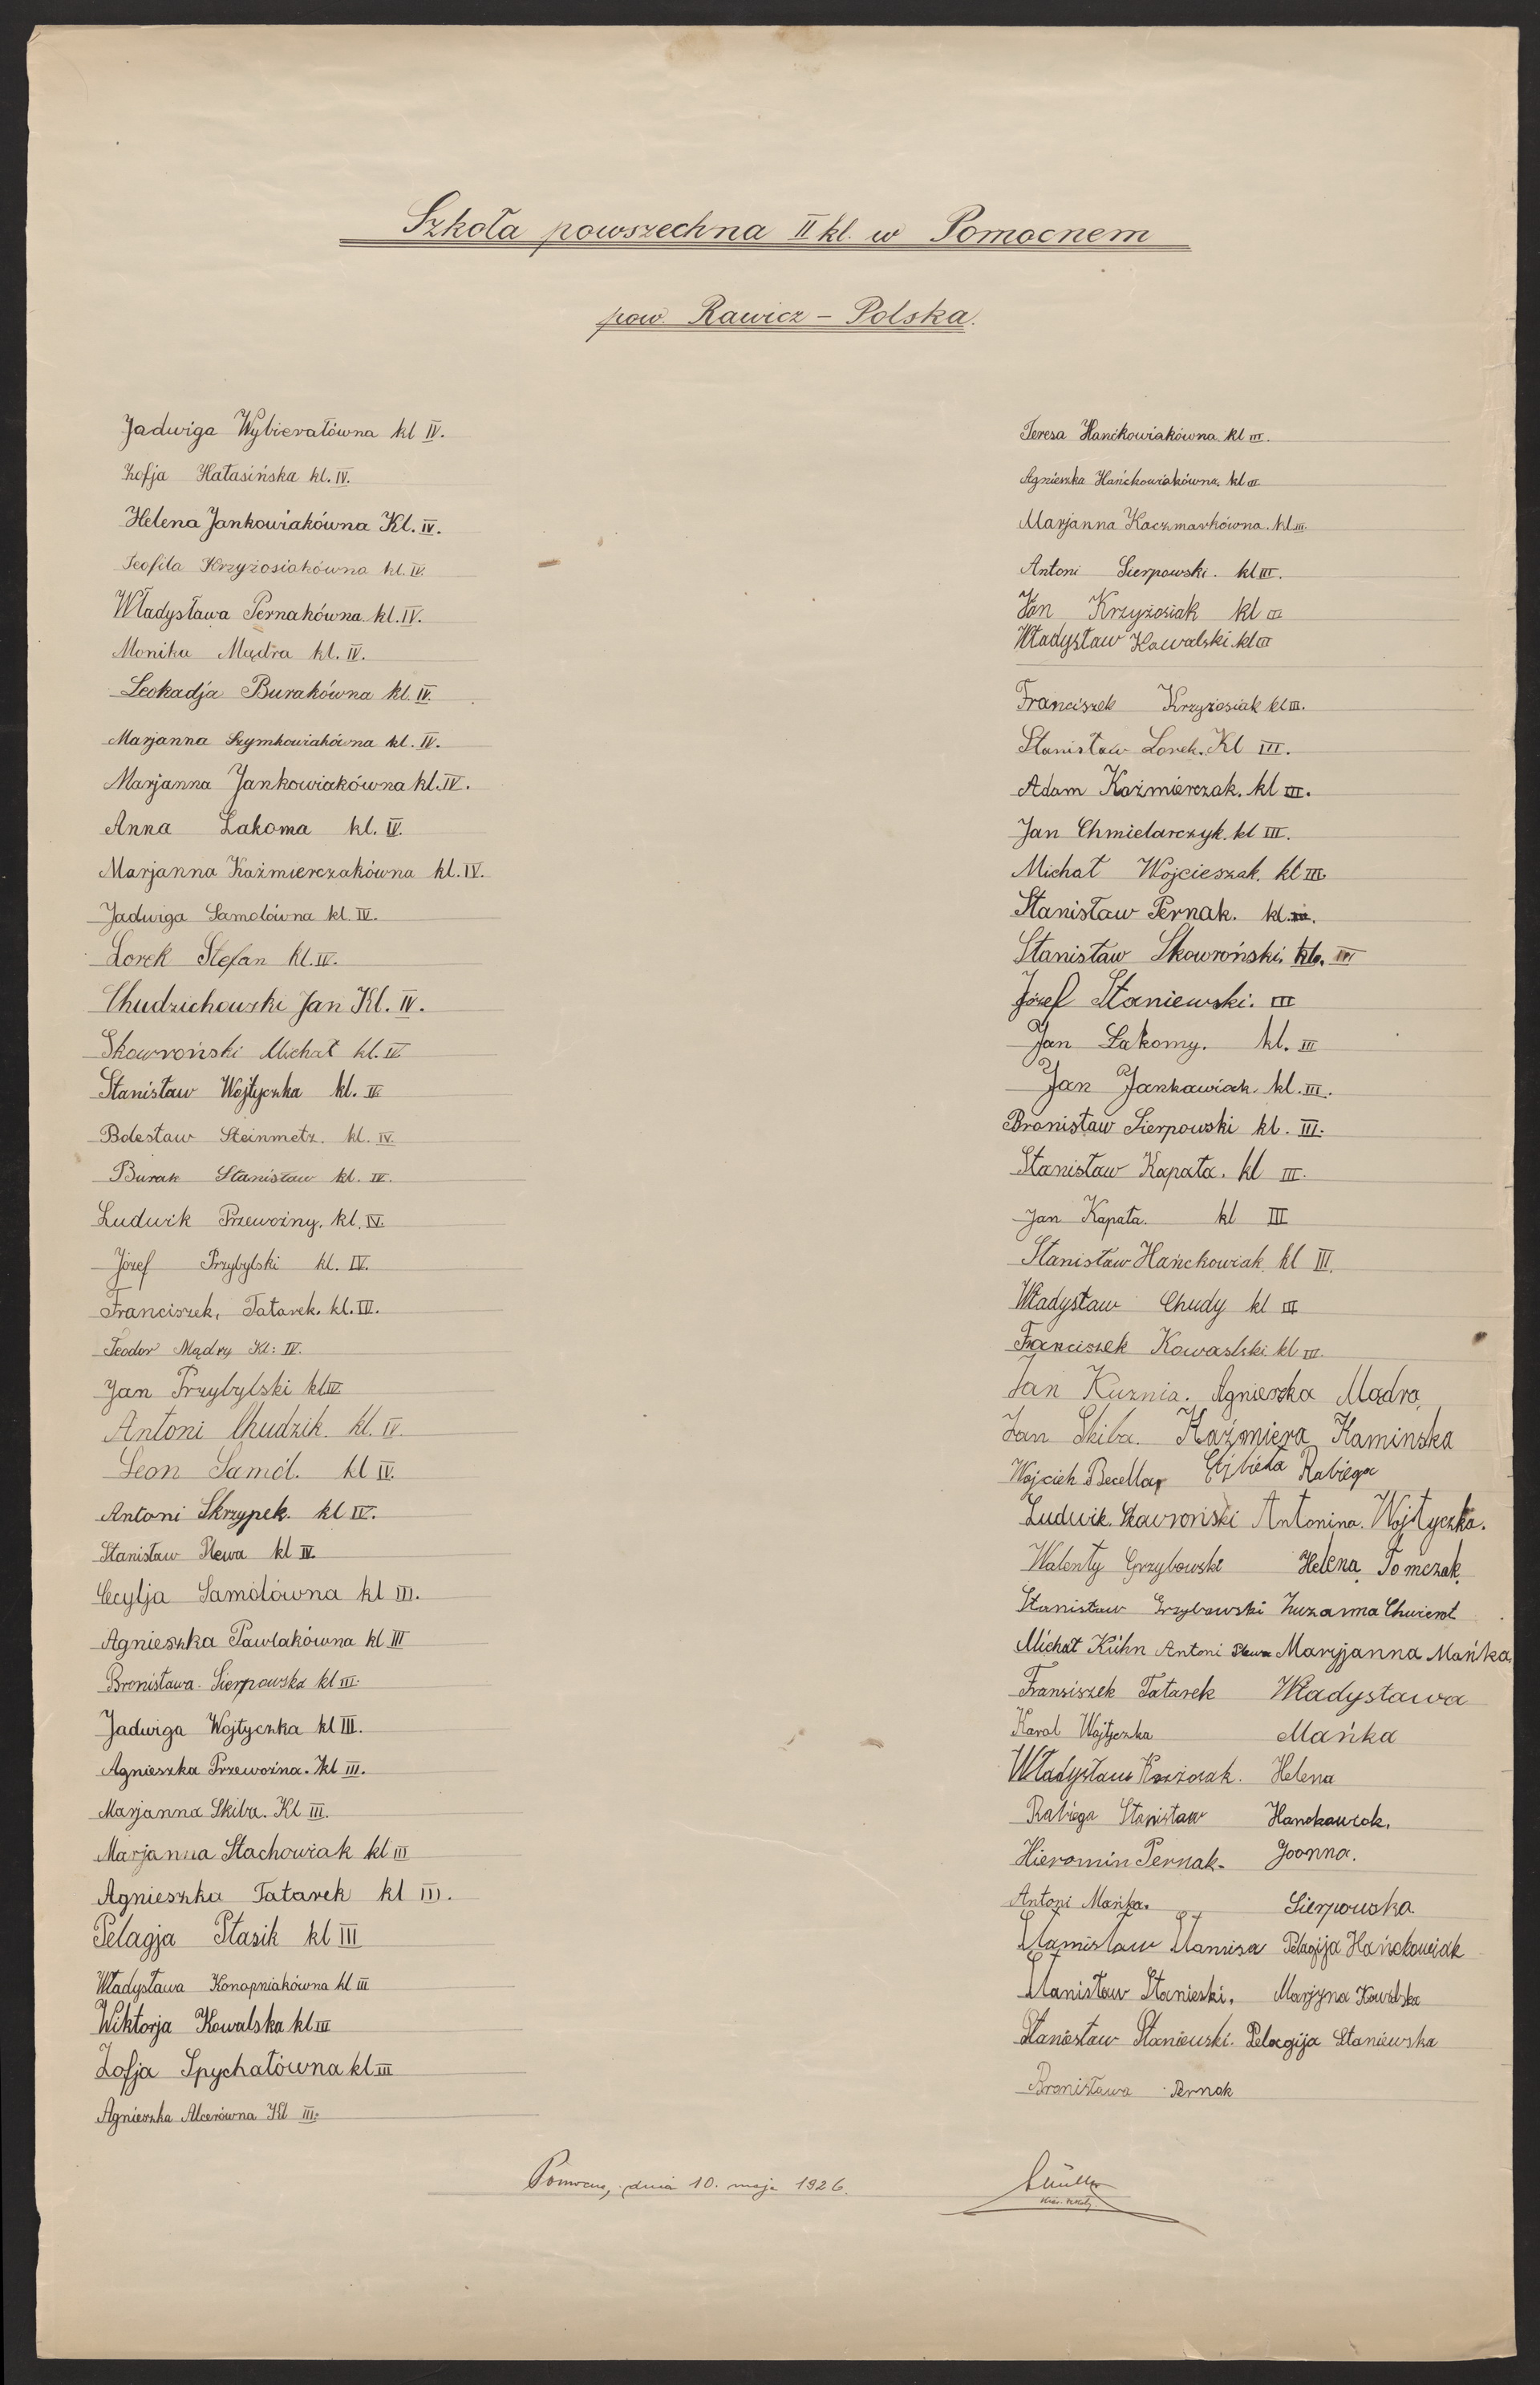 Szkoła powszechna II kl. w Pomocnem
pow. Rawicz – Polska.
Jadwiga Wybierałówna kl IV.
Zofja Hałasińska kl. IV.
Helena Jankowiakówna Kl. IV.
Teofila Krzyżosiakówna kl. IV.
Władysława Pernakówna kl. IV.
Monika Mądra kl. IV.
Leokadja Burakówna kl. IV.
Marjanna Szymkowiakówna kl. IV.
Marjanna Jankowiakówna kl. IV.
Anna Łakoma kl. IV.
Marjanna Kaźmierczakówna kl. IV.
Jadwiga Samolówna kl IV.
Lorek Stefan kl. IV.
Chudzichowski Jan Kl. IV.
Skowroński Michał kl. IV.
Stanisław Wojtyczka kl. IV.
Bolesław Steinmetz. kl. IV.
Burak Stanisław kl. IV.
Ludwik Przewoźny. kl. IV.
Józef Przybylski kl. IV.
Franciszek, Tatarek. kl. IV.
Teodor Mądry Kl: IV.
Jan Przybylski kl IV
Antoni Chudzik. kl. IV.
Leon Samól. kl IV.
Antoni Skrzypek. kl IV.
Stanisław Plewa kl IV.
Cecylja Samolówna kl III.
Agnieszka Pawlakówna kl III
Bronisława Sierpowska kl III.
Jadwiga Wojtyczka kl III.
Agnieszka Przewoźna. Kl III.
Marjanna Skiba. Kl III.
Marjanna Stachowiak kl III
Agnieszka Tatarek kl III.
Pelagja Ptasik kl III
Władysława Konopniakówna kl III
Wiktorja Kowalska kl III
Zofja Spychałówna kl III
Agnieszka Alcerówna Kl III.
Teresa Hańckowiakówna kl III.
Agnieszka Hańckowiakówna. kl III
Marjanna Kaczmarkówna. kl III.
Antoni Sierpowski. kl III.
Jan Krzyżosiak kl III
Władysław Kowalski. kl III
Franciszek Krzyżosiak kl III.
Stanisław Lorek. Kl III.
Adam Kaźmierczak. kl III.
Jan Chmielarczyk. kl III.
Michał Wojcieszak. kl III.
Stanisław Pernak. kl. III.
Stanisław Skowroński. kl. III
Józef Staniewski. III
Jan Łakomy. kl. III
Jan Jankawiak. kl. III.
Bronisław Sierpowski kl. III.
Stanisław Kapała. kl III.
Jan Kapała. kl III
Stanisław Hańckowiak kl III.
Władysław Chudy kl III
Franciszek Kowaslski kl III.
Jan Kuznia. Agnieszka Madra.
Jan Skiba. Kaźmiera Kaminska
Wojciek Becellar Elżbieta Rabiega
Ludwik. Skawroński Antonina. Wojtyczka.
Walenty Grzybowski Helena Tomczak.
Stanisław Grzybowski Zuzanna Chwierot
Michał Kühn Antoni Plewa Maryjanna Mańka.
Fransiszek Tatarek Władysława
Karol Wojtyczka Mańka
Władysław Krzżosak. Helena
Rabiega Stanisław Hanckowiak.
Hieromin Pernak. Joanna.
Antoni Mańka. Sierpowska.
Stanisław Stanisa Pelagija Hańckowiak
Stanisław Stanieski. Marjyna Kowalska
Stanisław Staniewski. Pelagija Staniewska
Bronisława Pernak
Pomocne, dnia 10. maja 1926.
kier. szkoły.